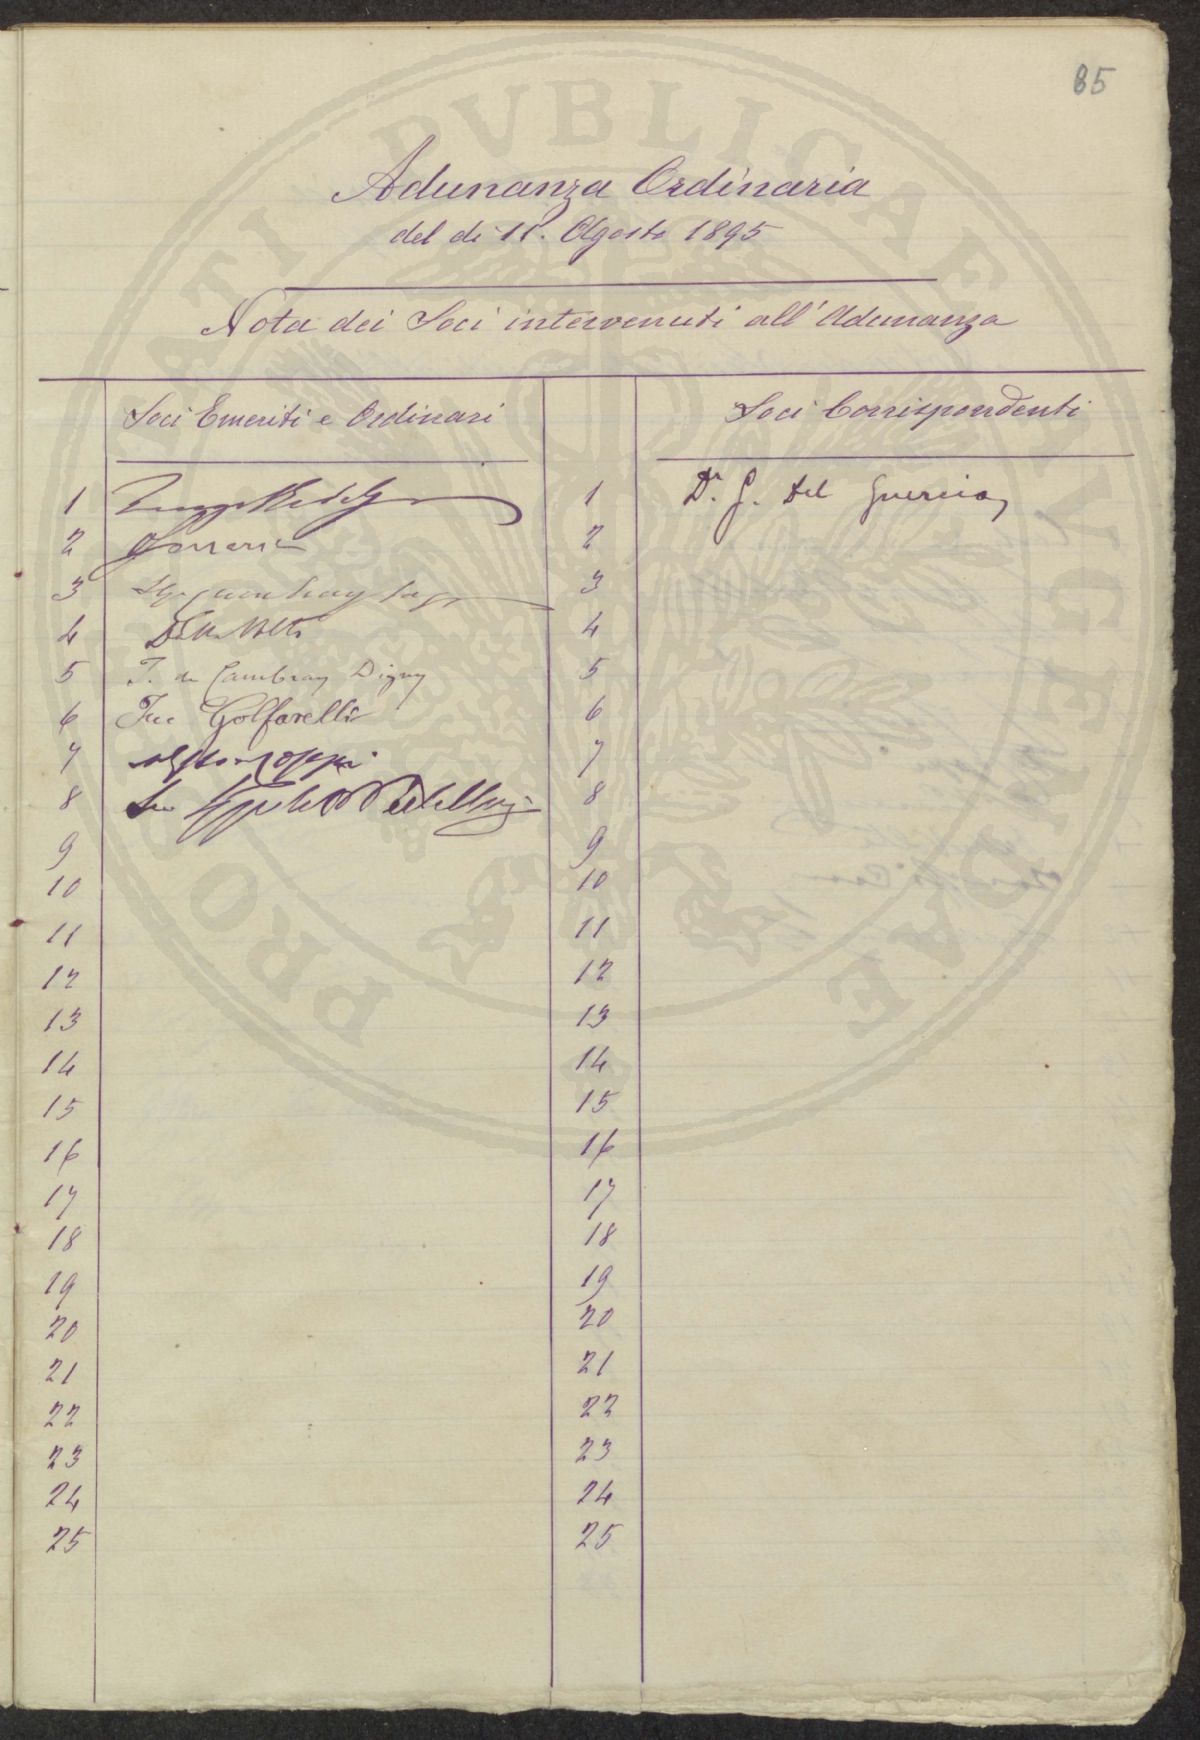 85
PROSPERITATI PVBLICAE AVGENDAE
Adunanza Ordinaria
del dì 11. Agosto 1895
Nota dei Soci intervenuti all'Adunanza
Soci Emeriti e Ordinari
Soci Corrispondenti
1 1 Dr. G. Del Guercio
2 2
3 3
4 4
5 T. de Cambray Digny 5
6 Golfarelli 6
7 7
8 8
9 9
10 10
11 11
12 12
13 13
14 14
15 15
16 16
17 17
18 18
19 19
20 20
21 21
22 22
23 23
24 24
25 25